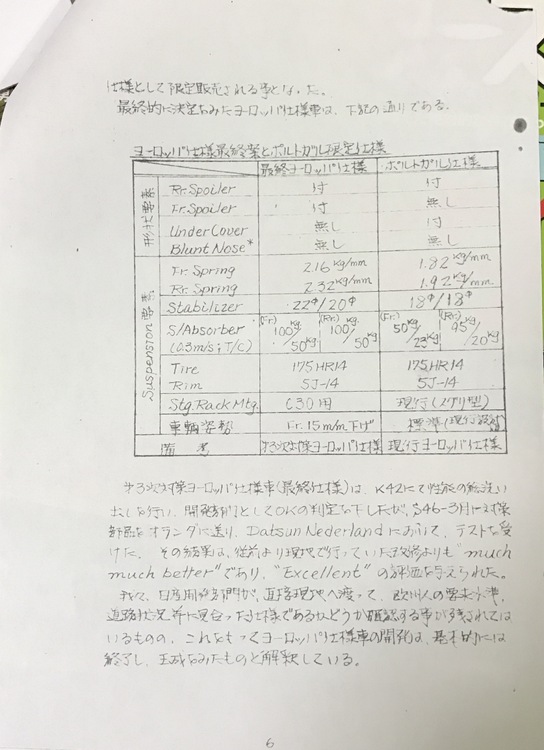 仕様として限定販売される事となった。
最終的に決定をみたヨーロッパ仕様車は、下記の通りである。
ヨーロッパ仕様最終案とポルトガル限定仕様
最終ヨーロッパ仕様 ポルトガル仕様
形状要素
Rr. Spoiler 付 付
Fr. Spoiler 付 無し
Under Cover 無し 付
Blunt Nose* 無し 無し
Suspension要素
Fr. Spring 2.16 kg/mm 1.82 kg/mm
Rr. Spring 2.32 kg/mm 1.92 kg/mm
Stabilizer 22φ/20φ 18φ/18φ
S/Absorber (Fr.) 100kg/50kg (Rr.) 100kg/50kg (Fr.) 50kg/23kg (Rr.) 95kg/20kg
(0.3m/s; T/C)
Tire 175HR14 175HR14
Rim 5J-14 5J-14
Stg. Rack Mtg. C30用 現行
車輌姿勢 Fr. 15m/m下げ 標準(現行設計)
備考 第3次対策ヨーロッパ仕様 現行ヨーロッパ仕様
第3次対策ヨーロッパ仕様車(最終仕様)は、K42にて性能の総洗い
出しを行い、開発部門としてOKの判定を下したが、S46-3月に対策
部品をオランダに送り、Datsun Nederlandにおいて、テストを受
けた。その結果は、従前より現地で行っていた改修よりも"much
much better"であり、"Excellent"の評価を与えられた。
我々、日産開発部門が、直接現地へ渡って、欧州人の要求水準、
道路状況等に見合った仕様であるかどうか確認する事が残されては
いるものの、これをもってヨーロッパ仕様車の開発は、基本的には
終了し、完成をみたものと解釈している。
6